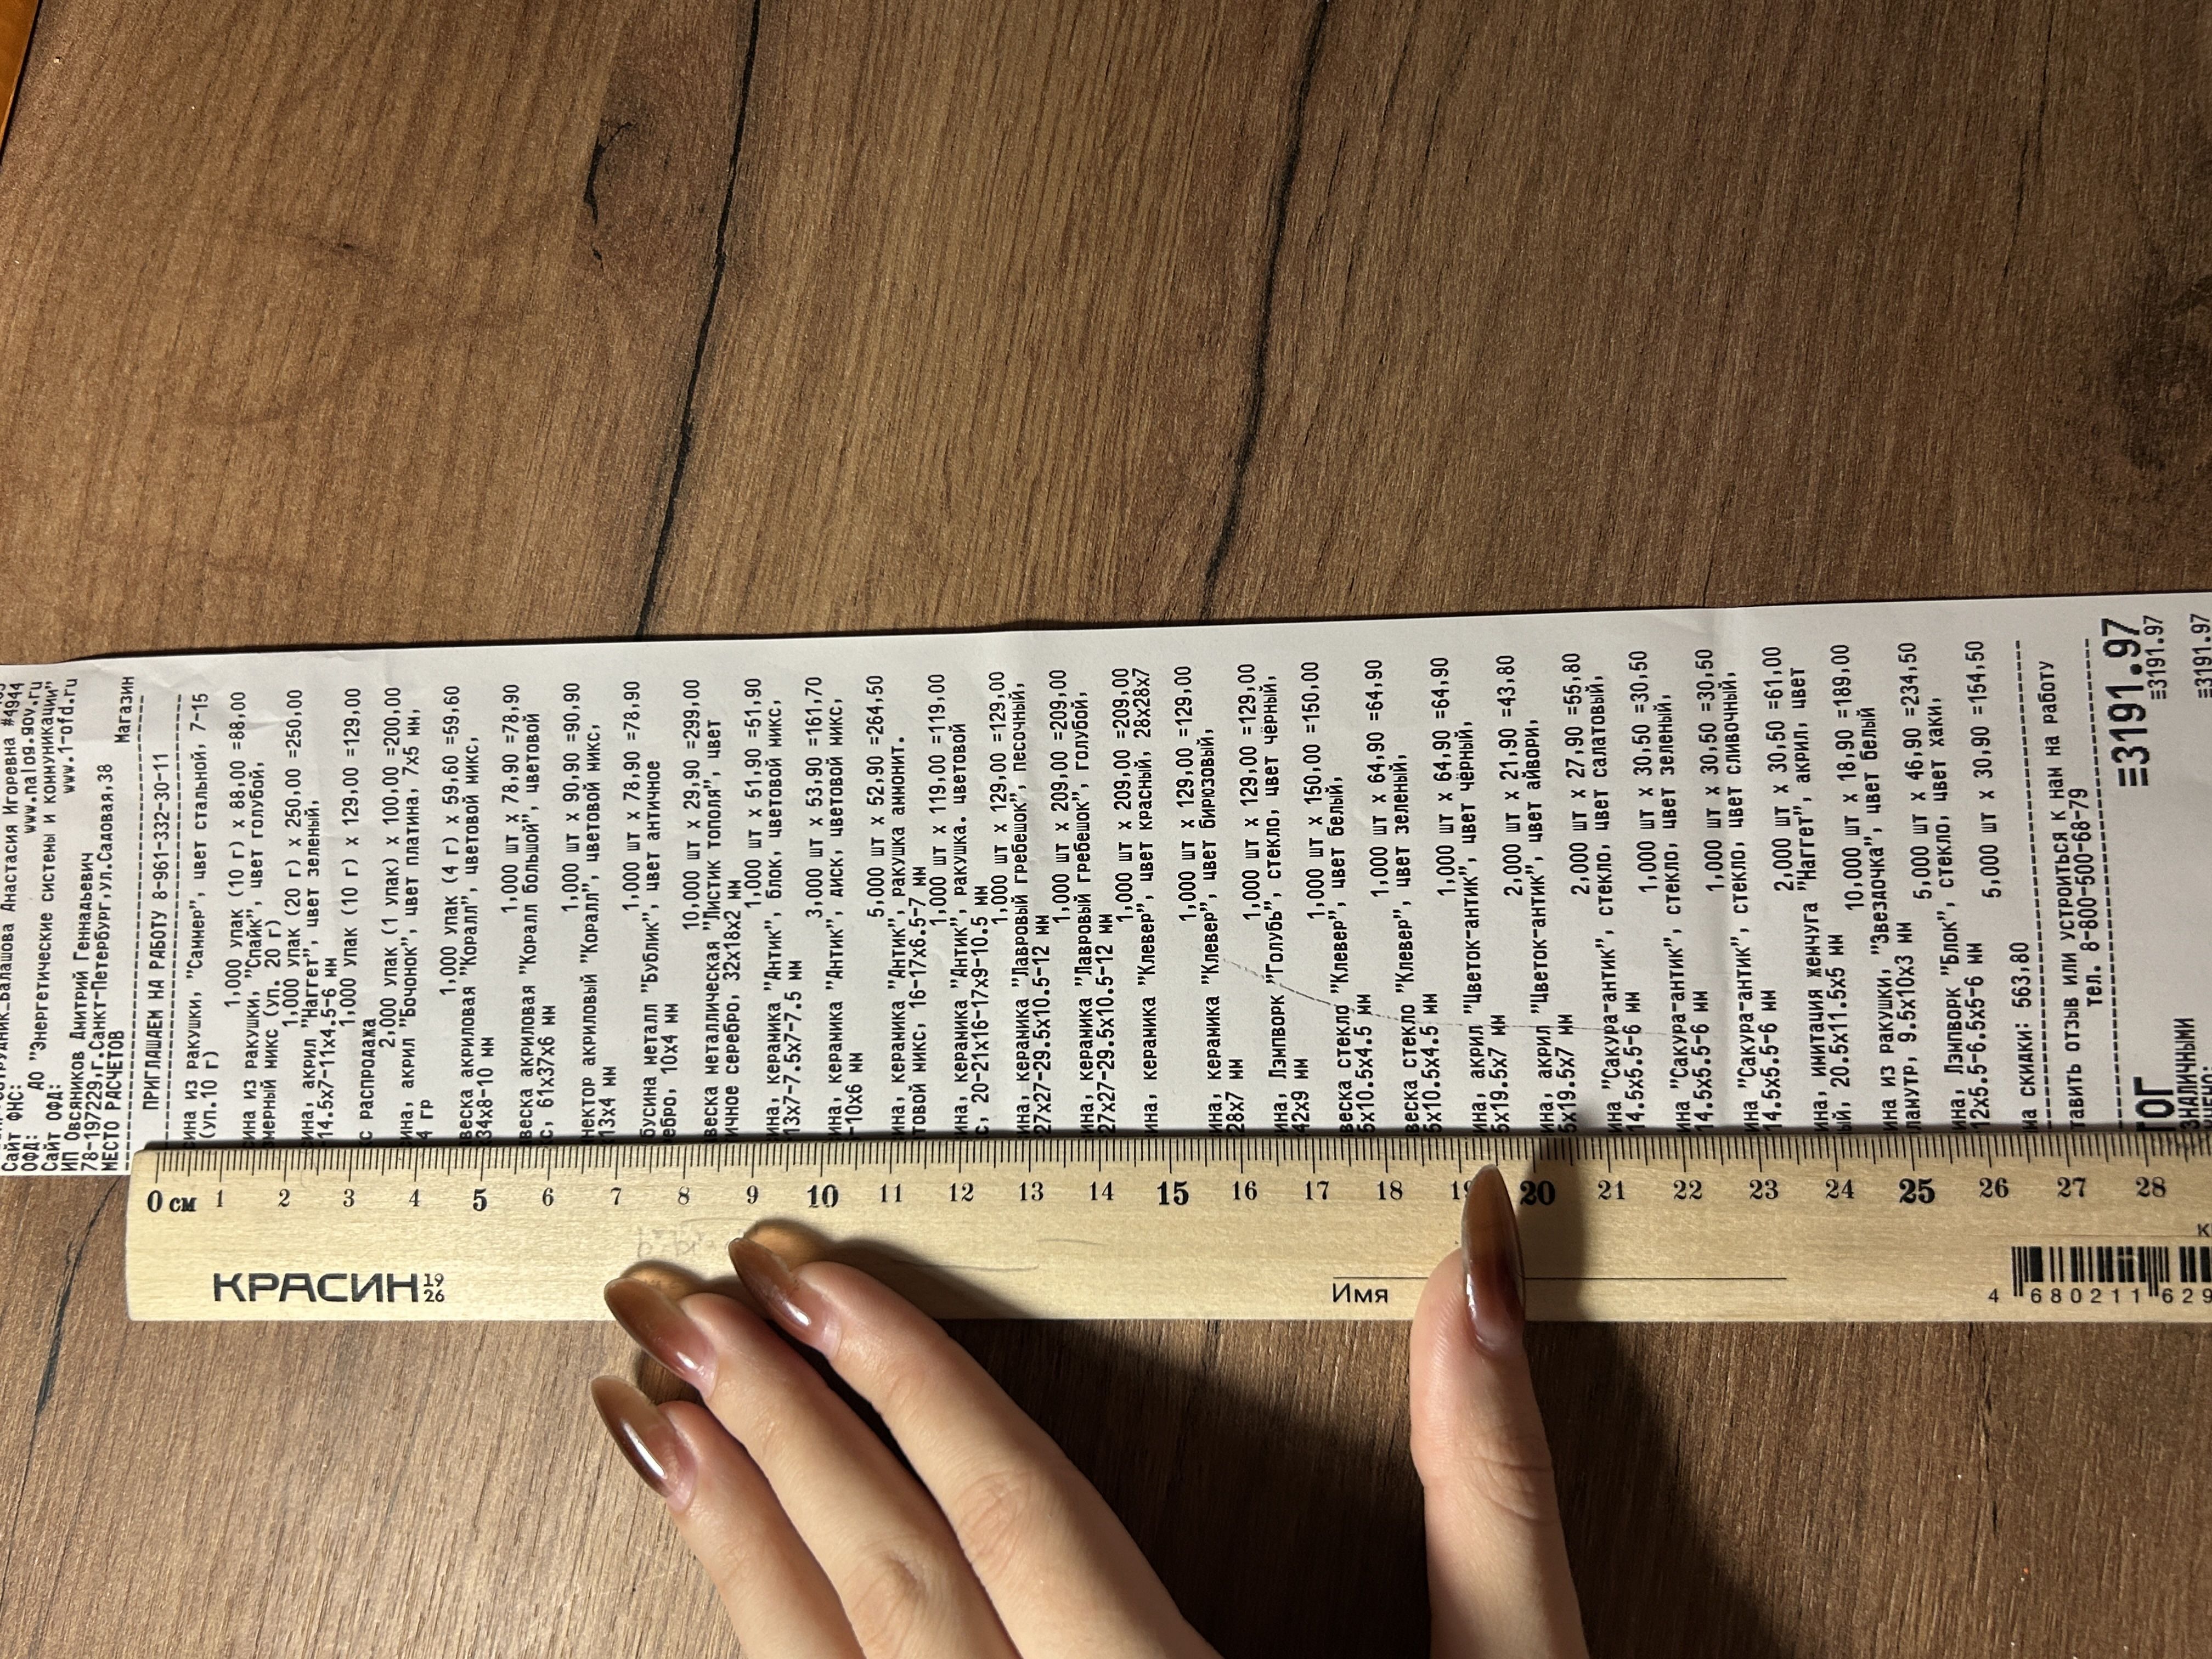 Сайт ФНС: www.nalog.gov.ru
ОФД: АО "Энергетические системы и коммуникации"
Сайт ОФД: www.1-ofd.ru
ИП Овсяников Дмитрий Геннадьевич
78-197229,г.Санкт-Петербург,ул.Садовая,38
МЕСТО РАСЧЕТОВ Магазин
ПРИГЛАШАЕМ НА РАБОТУ 8-961-332-30-11
сина из ракушки, "Саммер", цвет стальной, 7-15
(уп.10 г)
1,000 упак (10 г) x 88,00 =88,00
сина из ракушки, "Спайк", цвет голубой,
змерный микс (уп. 20 г)
1,000 упак (20 г) x 250,00 =250,00
ина, акрил "Наггет", цвет зеленый,
14.5x7-11x4.5-6 мм
1,000 упак (10 г) x 129,00 =129,00
с распродажа
2,000 упак (1 упак) x 100,00 =200,00
ина, акрил "Бочонок", цвет платина, 7x5 мм,
4 гр
1,000 упак (4 г) x 59,60 =59,60
веска акриловая "Коралл", цветовой микс,
34x8-10 мм
1,000 шт x 78,90 =78,90
веска акриловая "Коралл большой", цветовой
с, 61x37x6 мм
1,000 шт x 90,90 =90,90
нектор акриловый "Коралл", цветовой микс,
13x4 мм
1,000 шт x 78,90 =78,90
бусина металл "Бублик", цвет античное
ебро, 10x4 мм
10,000 шт x 29,90 =299,00
веска металлическая "Листик тополя", цвет
ичное серебро, 32x18x2 мм
1,000 шт x 51,90 =51,90
ина, керамика "Антик", блок, цветовой микс,
13x7-7.5x7-7.5 мм
3,000 шт x 53,90 =161,70
ина, керамика "Антик", диск, цветовой микс,
-10x6 мм
5,000 шт x 52,90 =264,50
ина, керамика "Антик", ракушка аммонит.
товой микс, 16-17x6.5-7 мм
1,000 шт x 119,00 =119,00
ина, керамика "Антик", ракушка. цветовой
с, 20-21x16-17x9-10.5 мм
1,000 шт x 129,00 =129,00
ина, керамика "Лавровый гребешок", песочный,
27x27-29.5x10.5-12 мм
1,000 шт x 209,00 =209,00
ина, керамика "Лавровый гребешок", голубой,
27x27-29.5x10.5-12 мм
1,000 шт x 209,00 =209,00
ина, керамика "Клевер", цвет красный, 28x28x7
1,000 шт x 129,00 =129,00
ина, керамика "Клевер", цвет бирюзовый,
28x7 мм
1,000 шт x 129,00 =129,00
ина, Лэмпворк "Голубь", стекло, цвет чёрный,
42x9 мм
1,000 шт x 150,00 =150,00
веска стекло "Клевер", цвет белый,
5x10.5x4.5 мм
1,000 шт x 64,90 =64,90
веска стекло "Клевер", цвет зеленый,
5x10.5x4.5 мм
1,000 шт x 64,90 =64,90
ина, акрил "Цветок-антик", цвет чёрный,
5x19.5x7 мм
2,000 шт x 21,90 =43,80
ина, акрил "Цветок-антик", цвет айвори,
5x19.5x7 мм
2,000 шт x 27,90 =55,80
ина "Сакура-антик", стекло, цвет салатовый,
14.5x5.5-6 мм
1,000 шт x 30,50 =30,50
ина "Сакура-антик", стекло, цвет зеленый,
14.5x5.5-6 мм
1,000 шт x 30,50 =30,50
ина "Сакура-антик", стекло, цвет сливочный,
14.5x5.5-6 мм
2,000 шт x 30,50 =61,00
ина, имитация жемчуга "Наггет", акрил, цвет
ый, 20.5x11.5x5 мм
10,000 шт x 18,90 =189,00
ина из ракушки, "Звездочка", цвет белый
ламутр, 9.5x10x3 мм
5,000 шт x 46,90 =234,50
ина, Лэмпворк "Блок", стекло, цвет хаки,
12x5.5-6.5x5-6 мм
5,000 шт x 30,90 =154,50
ма скидки: 563,80
тавить отзыв или устроиться к нам на работу
тел. 8-800-500-68-79
ТОГ ≡3191.97
ЗНАЛИЧНЫМИ ≡3191.97
≡3191.97
0 см 1 2 3 4 5 6 7 8 9 10 11 12 13 14 15 16 17 18 19 20 21 22 23 24 25 26 27 28
КРАСИН 19 26
Имя
4 680211 629